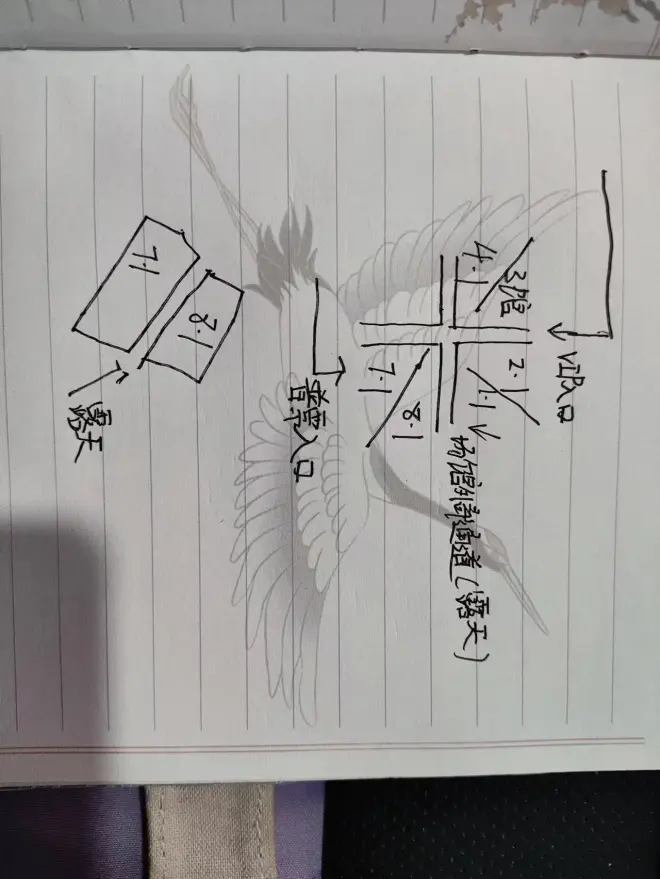 VIP入口
3馆
2.1
4.1
1.1
场馆外部通道(露天)
8.1
7.1
普票入口
8.1
7.1
露天